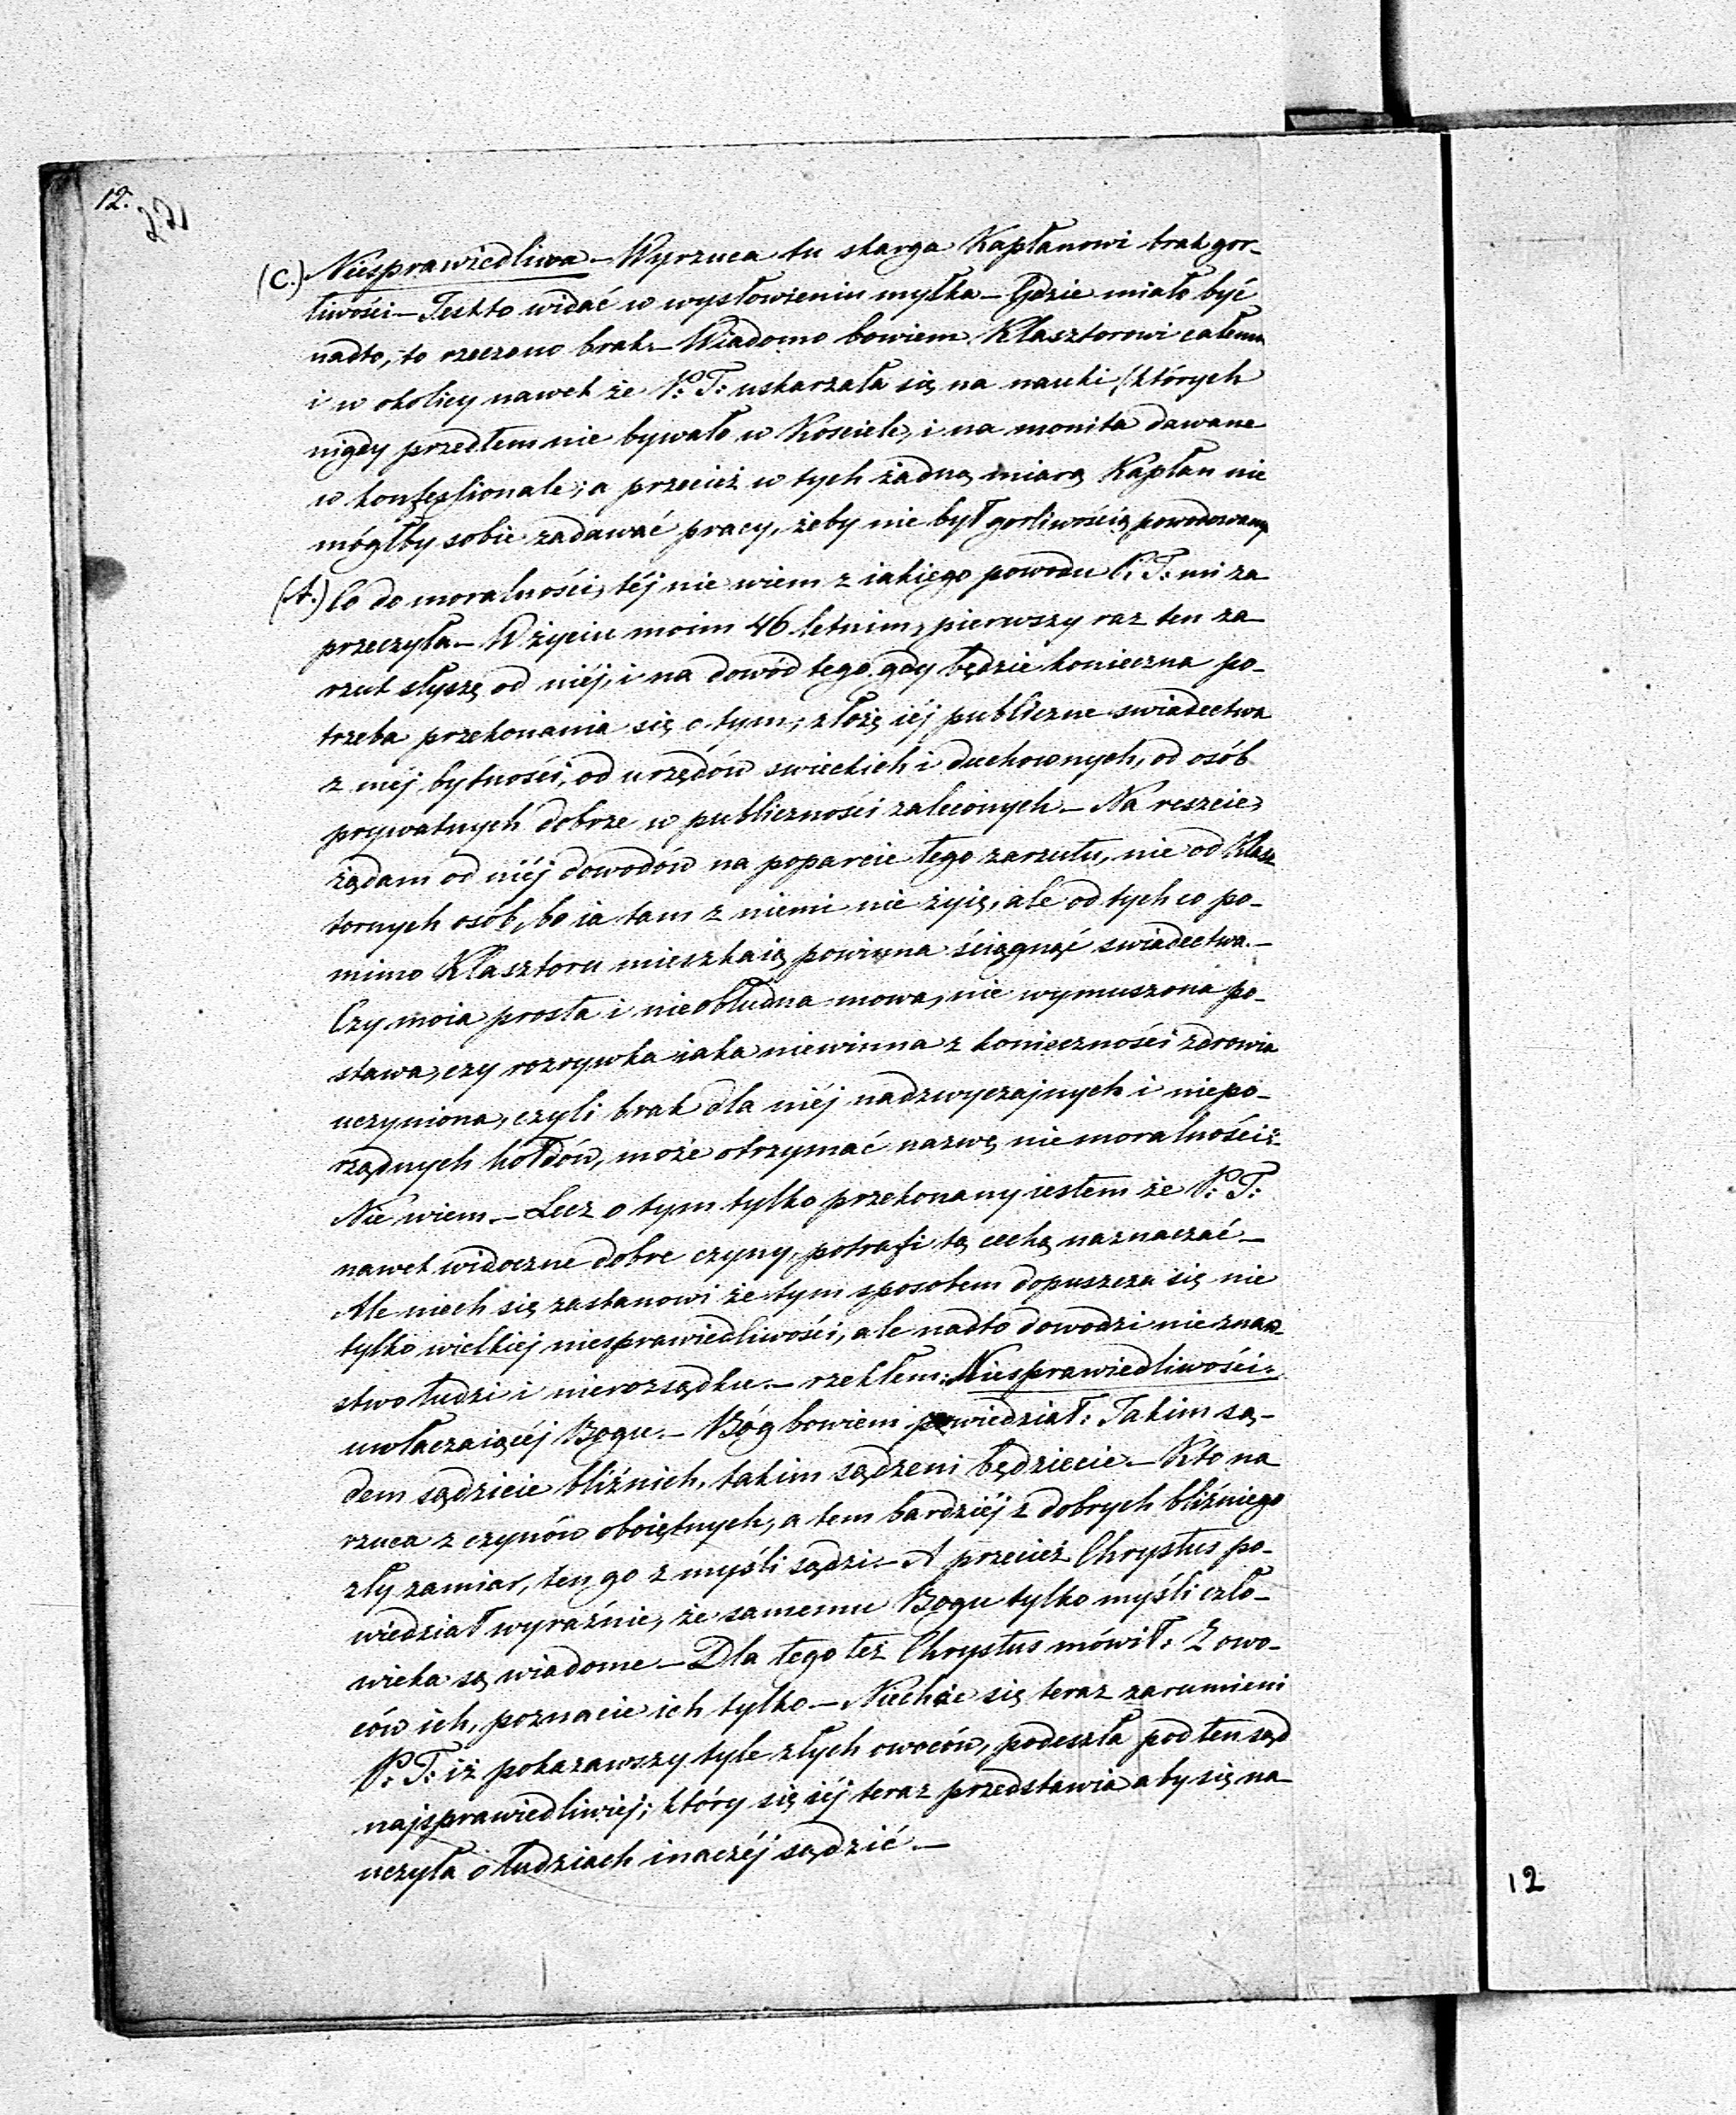 12.
(C.) Niesprawiedliwa – Wyrzuca tu skarga Kapłanowi brak gor-
liwości – Jestto widać w wysłowieniu myłka – Gdzie miało być
nadto, to rzeczono brak. – Wiadomo bowiem Klasztorowi całemu
i w okolicy nawet że P: T: uskarzała się na nauki, których
nigdy przedtem nie bywało w Kosciele, i na monita dawane
w konfessionale; a przecież w tych żadną miarą Kapłan nie
mógłby sobie zadawać pracy, żeby nie był gorliwością powodowany
(A.) Co do moralności, téj nie wiem z iakiego powodu P: T: mi za
przeczyła. – W życiu moim 46 letnim, pierwszy raz ten za-
rzut słyszę od niéj, i na dowód tego gdy będzie konieczna po-
trzeba przekonania się o tym, złożę iéj publiczne swiadectwa
z méj bytności, od urzędów swieckich i duchownych, od osób
prywatnych dobrze w publiczności zaleconych. – Na reszcie,
żądam od niéj dowodów na poparcie tego zarzutu, nie od Klasz
tornych osób, bo ia tam z niemi nie żyię, ale od tych co po-
mimo Klasztoru mieszkaią powinna ściągnąć swiadectwa. –
Czy moia prosta i nieobłudna mowa, nie wymuszona po-
stawa, czy rozrywka iaka niewinna z konieczności zdrowia
uczyniona, czyli brak dla niéj nadzwyczajnych i niepo-
rządnych hołdów, może otrzymać nazwę niemoralności?
Nie wiem. – Lecz o tym tylko przekonany iestem że P: T:
nawet widoczne dobre czyny, potrafi tą cechą naznaczać. –
Ale niech się zastanowi że tym sposobem dopuszcza się nie
tylko wielkiej niesprawiedliwości, ale nadto dowodzi nieznaw-
stwo ludzi i nierozsądku. – rzekłem: Niesprawiedliwości:
uwłaczaiącéj Bogu. – Bóg bowiem powiedział: Jakim są-
dem sądzicie bliźnich, takim sądzeni będziecie. – Kto na
rzuca z czynów oboiętnych, a tem bardziéj z dobrych bliźniego
zły zamiar, ten go z myśli sądzi. – A przecież Chrystus po-
wiedział wyraźnie, że samemu Bogu tylko myśli czło-
wieka są wiadome. – Dla tego też Chrystus mówił: Z owo-
ców ich, poznacie ich tylko. – Niechże się teraz zarumieni
P: T: iż pokazawszy tyle złych owoców, podeszła pod ten sąd
najsprawiedliwiej; który się iéj teraz przedstawia aby się na-
uczyła o ludziach inaczéj sądzić. –
12